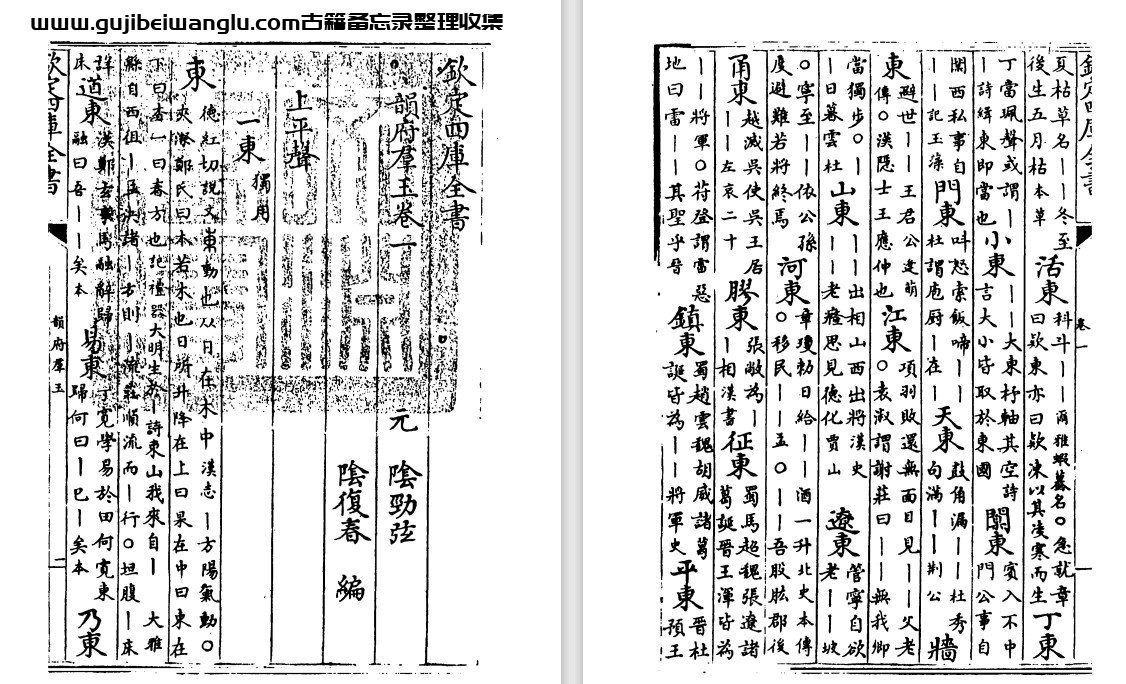 www.gujibeiwanglu.com古籍备忘录整理收集
欽定四庫全書
韻府羣玉卷一
元 陰勁弦
陰復春 編
上平聲
一東 獨用
東 德紅切說文東動也从日在木中漢志丨方陽氣動○
夾漈鄭氏曰木若木也日所升降在上曰杲在中曰東在
下曰杳一曰春方也記禮器大明生於丨詩東山我來自丨 大雅
緜自西徂丨孟決諸丨方則丨流莊順流而丨行○坦腹丨床
道東 漢鄭玄事馬融辭歸
融曰吾丨丨矣本
易東 丁寬學易於田何寬東
歸何曰丨已丨矣本
乃東
欽定四庫全書
韻府羣玉
二
欽定四庫全書
卷一
夏枯草名丨丨冬至
後生五月枯本草
活東 科斗丨丨爾雅蝦蟇名○急就章
曰款東亦曰款凍以其凌寒而生
丁東
丁當珮聲或謂丨
丨詩緝東即當也
小東 丨丨大東杼軸其空詩
言大小皆取於東國
闗東 賓入不中
門公事自
闑西私事自
丨丨記玉藻
門東 呌怒索飯啼丨丨
杜謂庖厨丨在丨
天東 鼓角漏丨丨杜秀
句滿丨丨荆公
牆
東 避世丨丨王君公逵萌
傳○漢隱士王應仲也
江東 項羽敗還無面目見丨丨父老
○袁淑謂謝莊曰丨丨無我卿
當獨步○丨
丨日暮雲杜
山東 丨丨出相山西出將漢史
丨丨老癃思見德化賈山
遼東 管寧自欲
老丨丨坡
○寧至丨丨依公孫
度避難若將終焉
河東 章瓊勅日給丨丨酒一升北史本傳
○移民丨丨孟○丨丨吾股肱郡後
甬東 越滅吳使吳王居
丨丨左哀二十
膠東 張敞為丨
丨相漢書
征東 蜀馬超魏張遼諸
葛誕晉王渾皆為
丨丨將軍○苻登謂雷惡
地曰雷丨丨其聖乎晉
鎮東 蜀趙雲魏胡威諸葛
誕皆為丨丨將軍史
平東 晉杜
預王